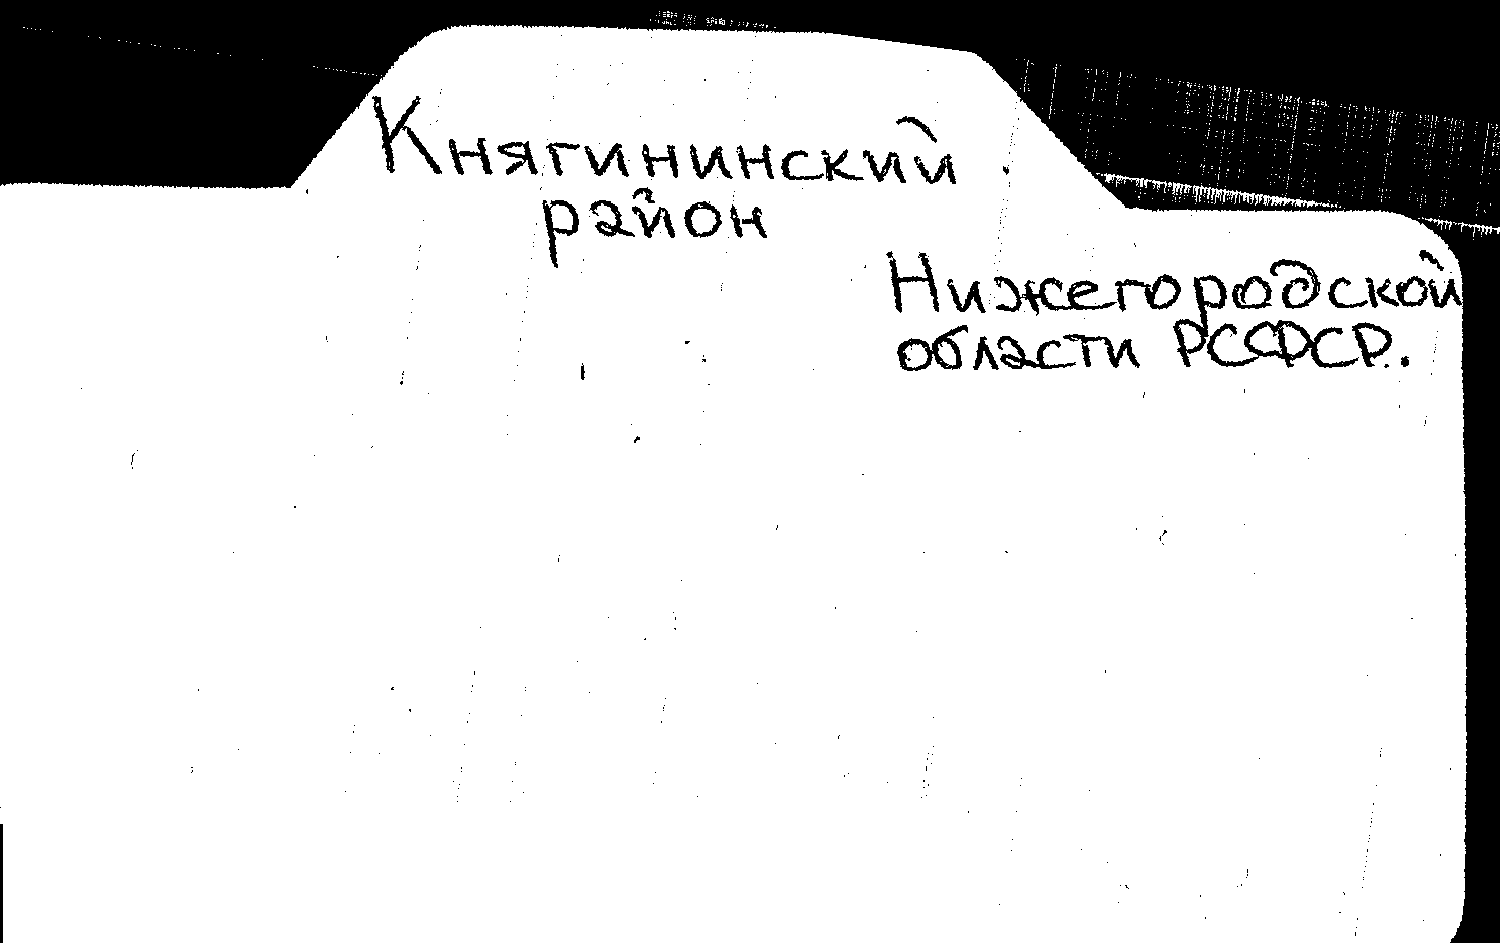 Княгининский
район
Нижегородской
области РСФСР.